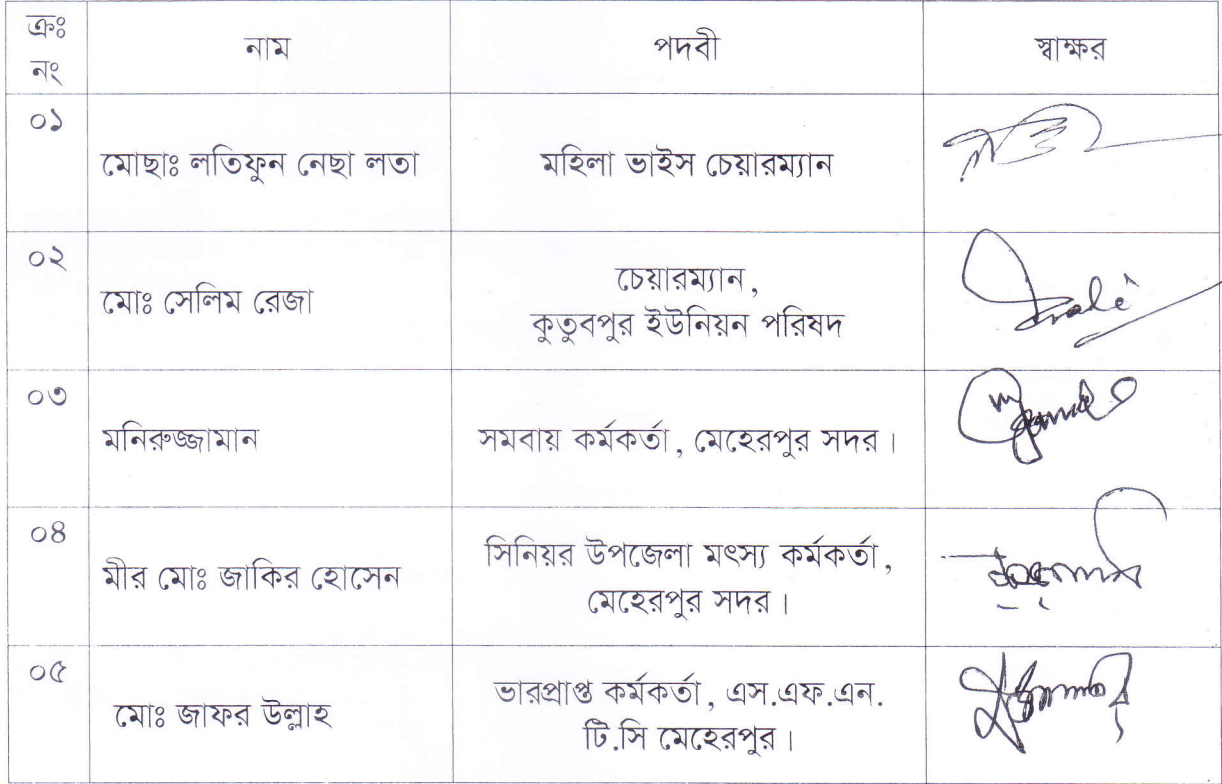 ক্রঃ নং নাম পদবী স্বাক্ষর
০১ মোছাঃ লতিফুন নেছা লতা মহিলা ভাইস চেয়ারম্যান
০২ মোঃ সেলিম রেজা চেয়ারম্যান,
কুতুবপুর ইউনিয়ন পরিষদ
০৩ মনিরুজ্জামান সমবায় কর্মকর্তা, মেহেরপুর সদর।
০৪ মীর মোঃ জাকির হোসেন সিনিয়র উপজেলা মৎস্য কর্মকর্তা,
মেহেরপুর সদর।
০৫ মোঃ জাফর উল্লাহ ভারপ্রাপ্ত কর্মকর্তা, এস.এফ.এন.
টি.সি মেহেরপুর।